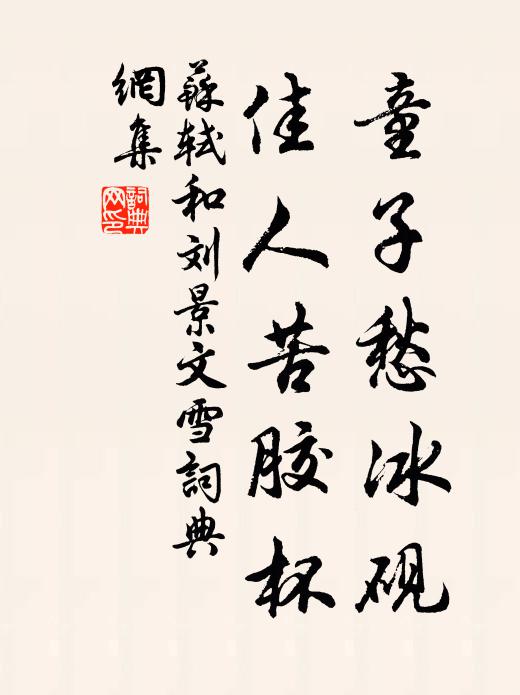 童子愁冰硯
佳人苦胶杯
蘇軾和刘景文雪詞典
網集
詞典网印